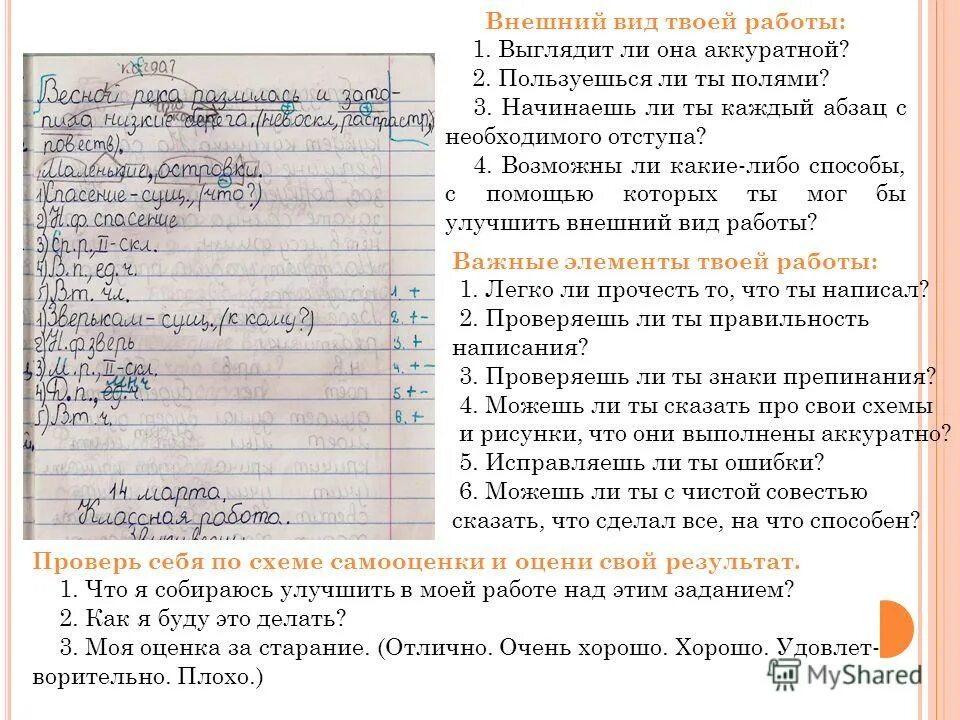 когда?
Весной река разлилась и зато-
пила низкие берега. (невоскл., распростр.,
повеств.).
Маленькие, островки.
1) Спасение - сущ., (что?)
2) Н.ф. спасение
3) Ср.р., II-скл.
4) В.п., ед.ч.
5) Вт. чл.
1) Зверькам - сущ., (к кому?)
2) Н.ф. зверь
3) М.р., II-скл.
мн.ч
4) Д.п., ед.ч.
5) Вт. ч.
1. +
2. +-
3. +
4. +-
5. +-
6. +
14 марта.
Классная работа.
Внешний вид твоей работы:
1. Выглядит ли она аккуратной?
2. Пользуешься ли ты полями?
3. Начинаешь ли ты каждый абзац с
необходимого отступа?
4. Возможны ли какие-либо способы,
с помощью которых ты мог бы
улучшить внешний вид работы?
Важные элементы твоей работы:
1. Легко ли прочесть то, что ты написал?
2. Проверяешь ли ты правильность
написания?
3. Проверяешь ли ты знаки препинания?
4. Можешь ли ты сказать про свои схемы
и рисунки, что они выполнены аккуратно?
5. Исправляешь ли ты ошибки?
6. Можешь ли ты с чистой совестью
сказать, что сделал все, на что способен?
Проверь себя по схеме самооценки и оцени свой результат.
1. Что я собираюсь улучшить в моей работе над этим заданием?
2. Как я буду это делать?
3. Моя оценка за старание. (Отлично. Очень хорошо. Хорошо. Удовлет-
ворительно. Плохо.)
MyShared